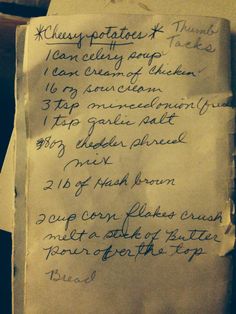 *Cheesy potatoes*
Thumb
Tacks
1 can celery soup
1 can cream of chicken
16 oz sour cream
3 tsp minced onion (fried
1 tsp garlic salt
8 oz chedder shreid
mix
2 lb of Hash brown
2 cup corn flakes crush
melt a stick of Butter
porer over the top
Bread